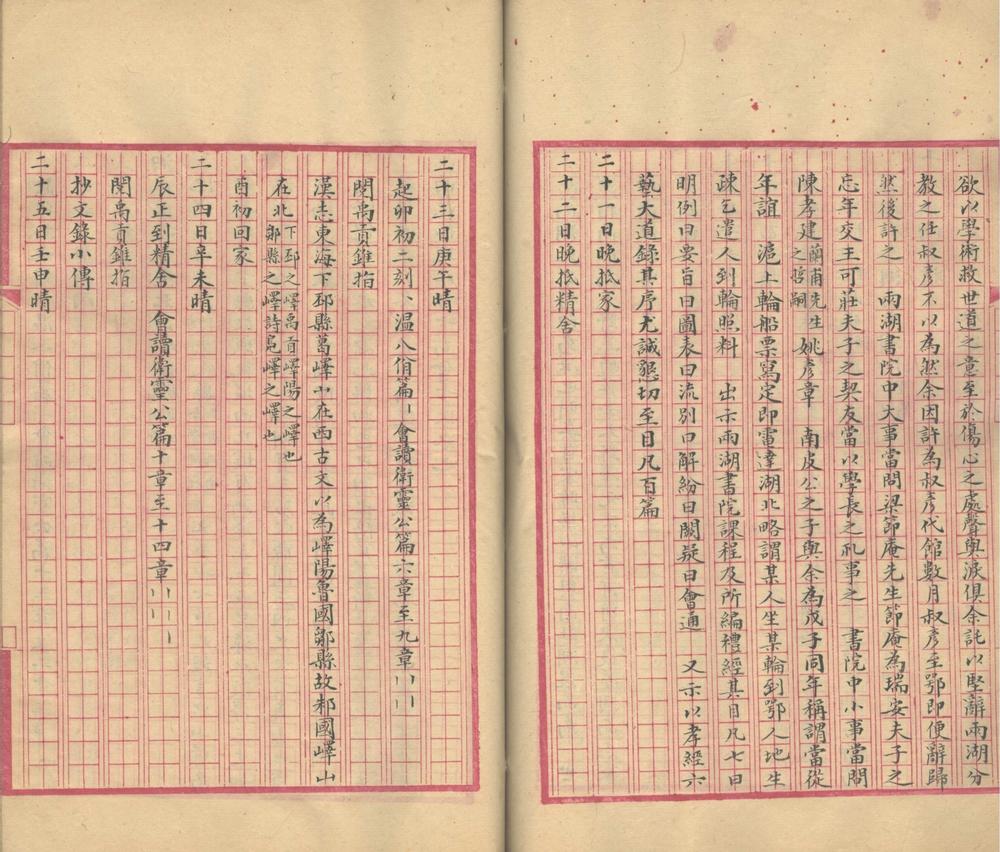 欲以學術救世道之意至於傷心之處聲與淚俱余託以堅辭兩湖分
教之任叔彥不以為然余因許為叔彥代館數月叔彥至鄂即便辭歸
然後許之　兩湖書院中大事當問梁節庵先生節庵為瑞安夫子之
忘年交王可莊夫子之契友當以學長之礼事之　書院中小事當問
陳孝建蘭甫先生之哲嗣姚彥章　南皮公之子與余為戊子同年稱謂當從
年誼　滬上輪船票寫定即電達湖北略謂某人坐某輪到鄂人地生
疎乞遣人到輪照料　出示兩湖書院課程及所編禮經其目凡七曰
明例曰要旨曰圖表曰流別曰解紛曰闕疑曰會通　又示以孝經六
藝大道錄其序尤誠懇切至目凡百篇
二十一日晚抵家
二十二日晚抵精舍
二十三日庚午晴
起卯初二刻、溫八佾篇一會讀衛靈公篇六章至九章
閱禹貢錐指
漢志東海下邳縣葛嶧山在西古文以為嶧陽魯國鄒縣故邾國嶧山
在北下邳之嶧禹貢嶧陽之嶧也鄒縣之嶧詩鳧嶧之嶧也
酉初回家
二十四日辛未晴
辰正到精舍　會讀衛靈公篇十章至十四章
閱禹貢錐指
抄文錄小傳
二十五日壬申晴